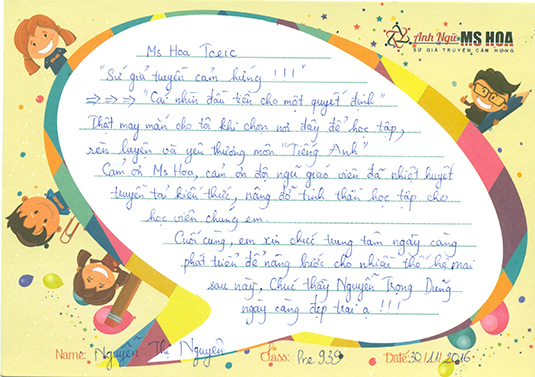 Anh Ngữ MS HOA
SỨ GIẢ TRUYỀN CẢM HỨNG
Ms Hoa Toeic
"Sứ giả truyền cảm hứng !!!"
⇒⇒⇒ "Cái nhìn đầu tiên cho một quyết định"
Thật may mắn cho tôi khi chọn nơi đây để học tập,
rèn luyện và yêu thương môn "Tiếng Anh"
Cảm ơn Ms Hoa, cảm ơn đội ngũ giáo viên đã nhiệt huyết
truyền tải kiến thức, nâng đỡ tinh thần học tập cho
học viên chúng em.
Cuối cùng, em xin chúc trung tâm ngày càng
phát triển để nâng bước cho nhiều thế hệ mai
sau này. Chúc thầy Nguyễn Trọng Dũng
ngày càng đẹp trai ạ !!!
Name: Nguyễn Thị Nguyên Class: Pre 939 Date: 30/11/2016